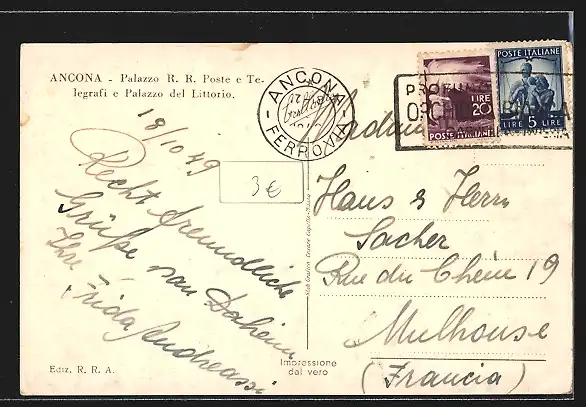 ANCONA - Palazzo R. R. Poste e Te-
legrafi e Palazzo del Littorio.
18/10 49
Recht freundliche
Grüße von Daheim
Ihre
Frida Andreassi
Ediz. R. R. A.
3€
ANCONA
FERROVIA
LIRE
20
POSTE ITALIANE
POSTE ITALIANE
LIRE 5 LIRE
Madame
Haus & Herrn
Sacher
Rue du Chêne 19
Mulhouse
(Francia)
Impressione
dal vero